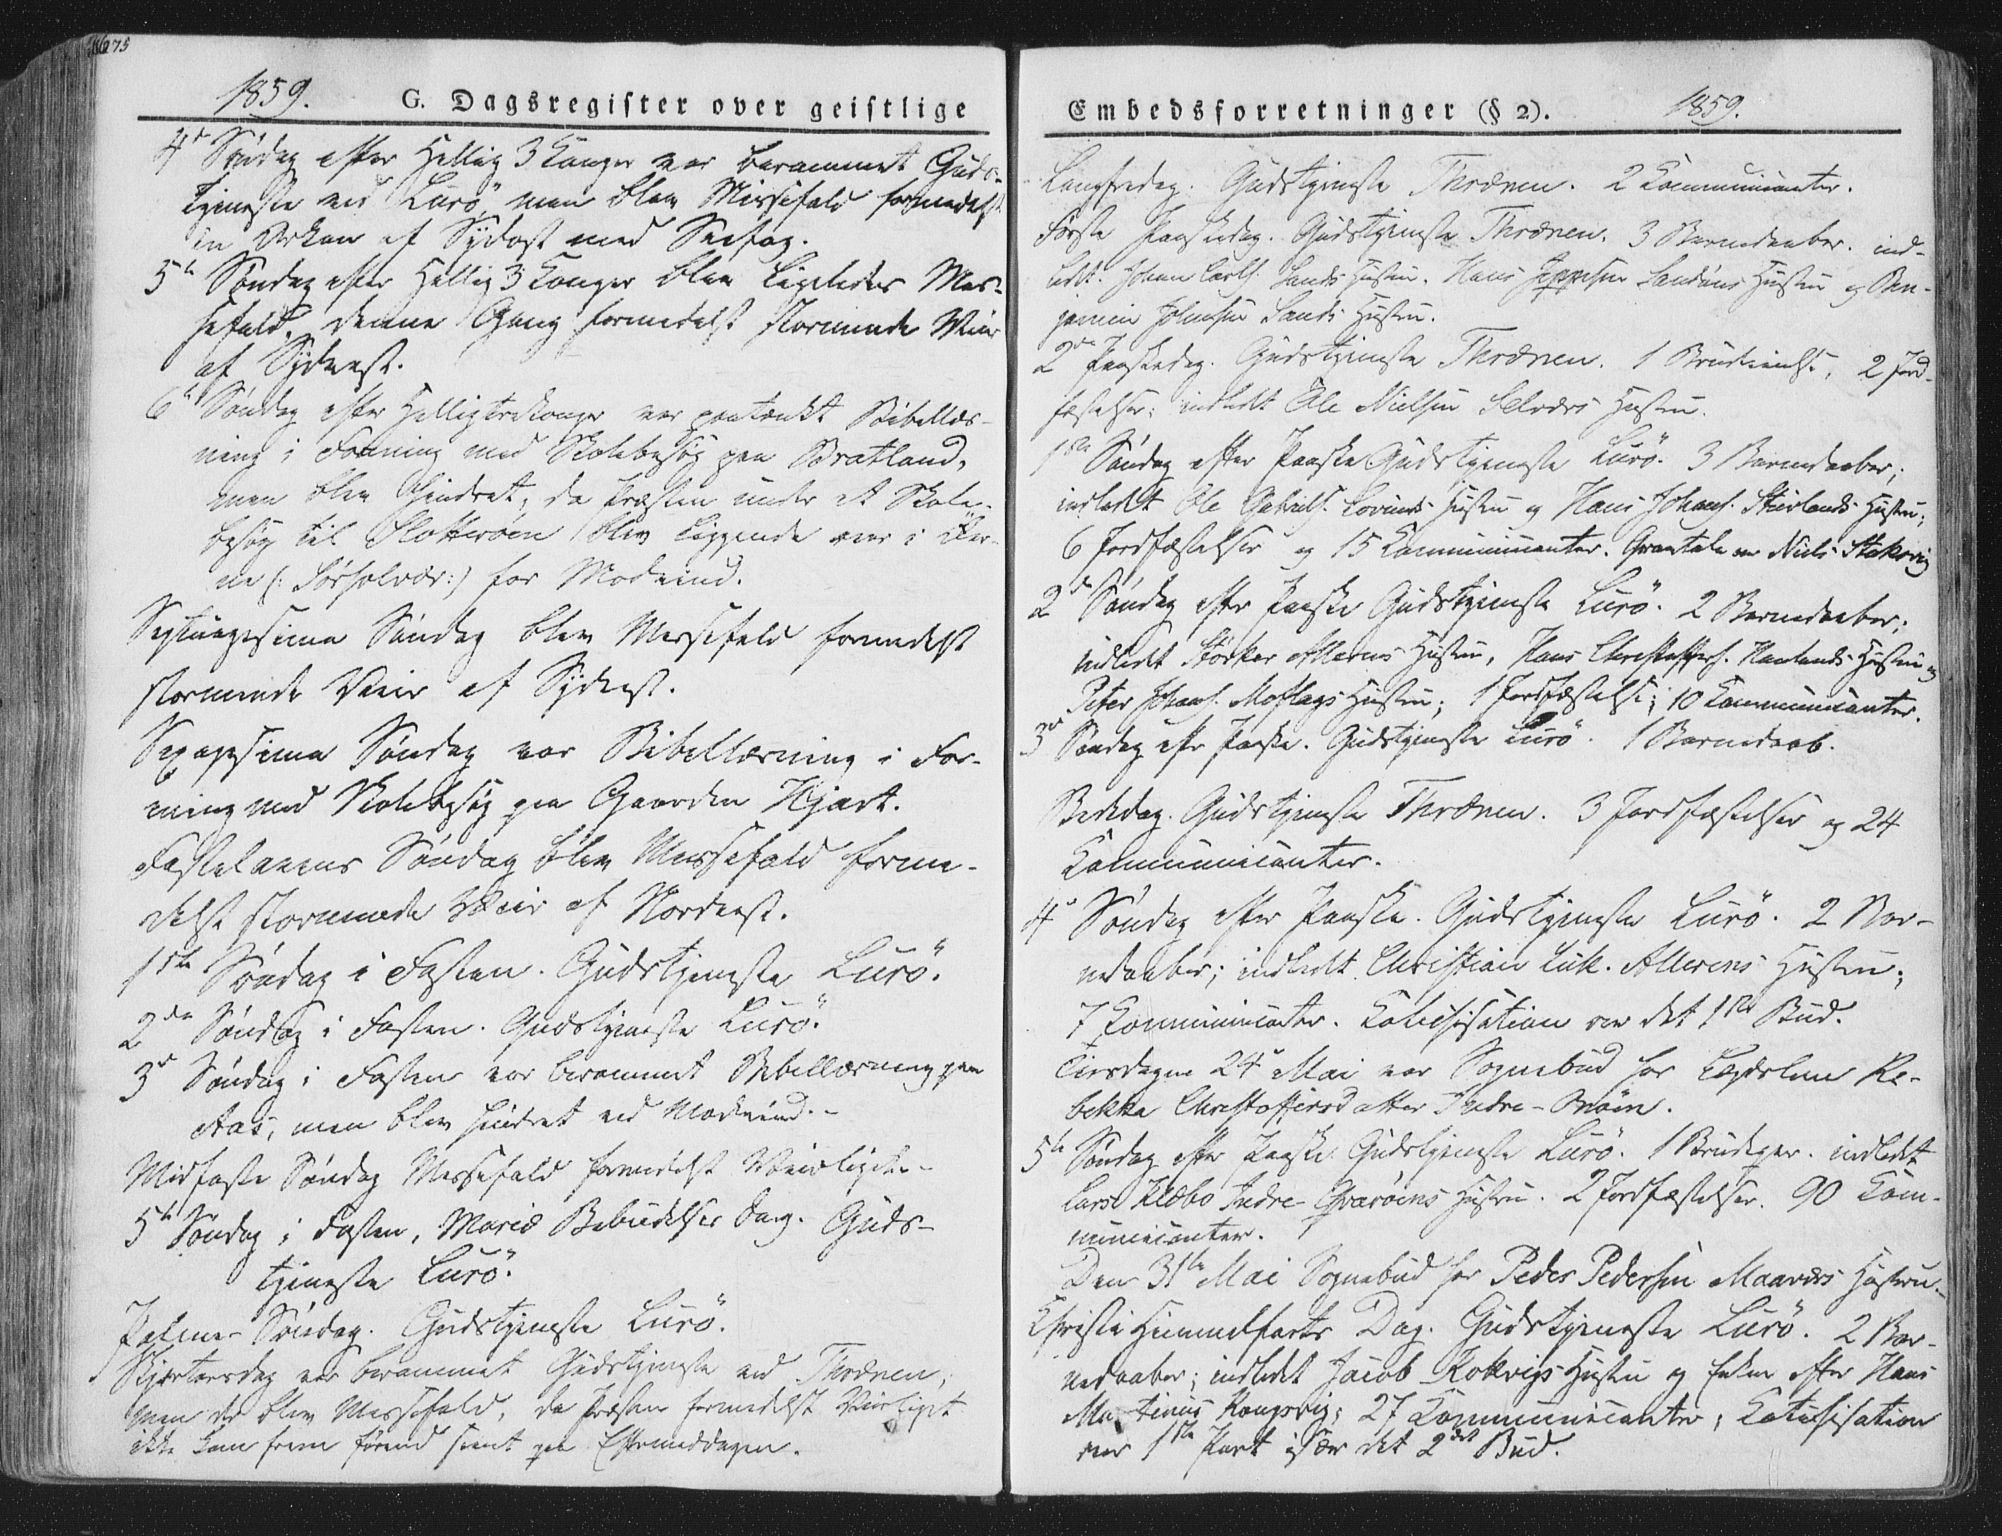 275
1859.
G. Dagsregister over geistlige
4de Søndag efter Hellig 3 Konger var berammet Guds-
tjeneste ved Lurö, men blev Messefald formedelst
en Orkan af Sydost med Snefog.
5te Søndag efter Hellig 3 Konger blev ligeledes Mes-
sefald. Denne Gang formedelst stormende Veir
af Sydvest.
6te Søndag efter Helligtrekonger var paatænkt Bibellæs-
ning i Forening med Skolebesøg paa Bratland,
men blev hindret, da Præsten under et Skole-
besøg til Slotterøen blev liggende veir i
(: Sørsolvær:) for Modvind.
Septuagesima Søndag blev Messefald formedelst
stormende Veir af Sydvest.
Sexagesima Søndag var Bibellæsning i For-
ening med Skolebesøg paa Gaarden Hjart.
Fastelavens Søndag blev Messefald forme-
delst stormende Veir af Nordvest.
1ste Søndag i Fasten. Gudstjeneste Lurö.
2den Søndag i Fasten. Gudstjeneste Lurö.
3die Søndag i Fasten var berammet Bibellæsning paa
Aas, men blev hindret ved Modvind.-
Midfaste Søndag Messefald formedelst Veirliget.-
5te Søndag i Fasten, Mariæ Bebudelses Dag. Guds-
tjeneste Lurö.
Palme-Søndag. Gudstjeneste Lurö.
Skjærtorsdag var berammet Gudstjeneste ved Thrænen,
men der blev Messefald, da Præsten formedelst Veirliget
ikke kom frem førend sent paa Eftermiddagen.
Embedsforretninger (§ 2).
1859.
Langfredag. Gudstjeneste Thrænen. 2 Communicanter.
Første Paaskedag. Gudstjeneste Thrænen. 3 Barnedaaber. ind-
ledt. Johan Carls. Sands Hustru. Hans Jeppesen Sandøens Hustru og Ben-
jamin Johnsen Sands Hustru.
2den Paaskedag. Gudstjeneste Thrænen. 1 Brudevielse, 2 Jord-
fæstelser; indledt Ole Nielsen Selværs Hustru.
1ste Søndag efter Paaske Gudstjeneste Lurö. 3 Barnedaaber;
indledt Ole Gabriels. Lovunds Hustru og Hans Johans. Stuvlands Hustru;
6 Jordfæstelser og 15 Communicanter. Gravtale over Niels Stokvig
2den Søndag efter Paaske Gudstjeneste Lurö. 2 Barnedaaber;
indledt Størker Alderens Hustru, Hans Christoffers. Haalands Hustru og
Peter Johans. Moflags Hustru; 1 Jordfæstelse; 10 Communicanter.
3die Søndag efter Paaske. Gudstjeneste Lurö. 1 Barnedaab.
Bededag. Gudstjeneste Thrænen. 3 Jordfæstelser og 24
Communicanter.
4de Søndag efter Paaske. Gudstjeneste Lurö. 2 Bar-
nedaaber; indledt Christian Luk. Alderens Hustru;
7 Communicanter. Katechisation over det 1ste Bud.
Tirsdagen 24de Mai var Sognebud for Lægdslem Re-
bekka Christoffersdatter Indre-Onøen.
5te Søndag efter Paaske Gudstjeneste Lurö. 1 Brudepar. indledt
Lars Klæbo Indre-Qvarøens Hustru. 2 Jordfæstelser. 90 Com-
municanter.
Den 31te Mai Sognebud for Peder Pedersen Maaværs Hustru.
Christi Himmelfarts Dag. Gudstjeneste Lurö. 2 Bar-
nedaaber; indledt Jacob Kokvigs Hustru og Enken efter Hans
Martinus Kongsvig; 27 Communicanter; Katechisation
over 1ste Part især det 2det Bud.